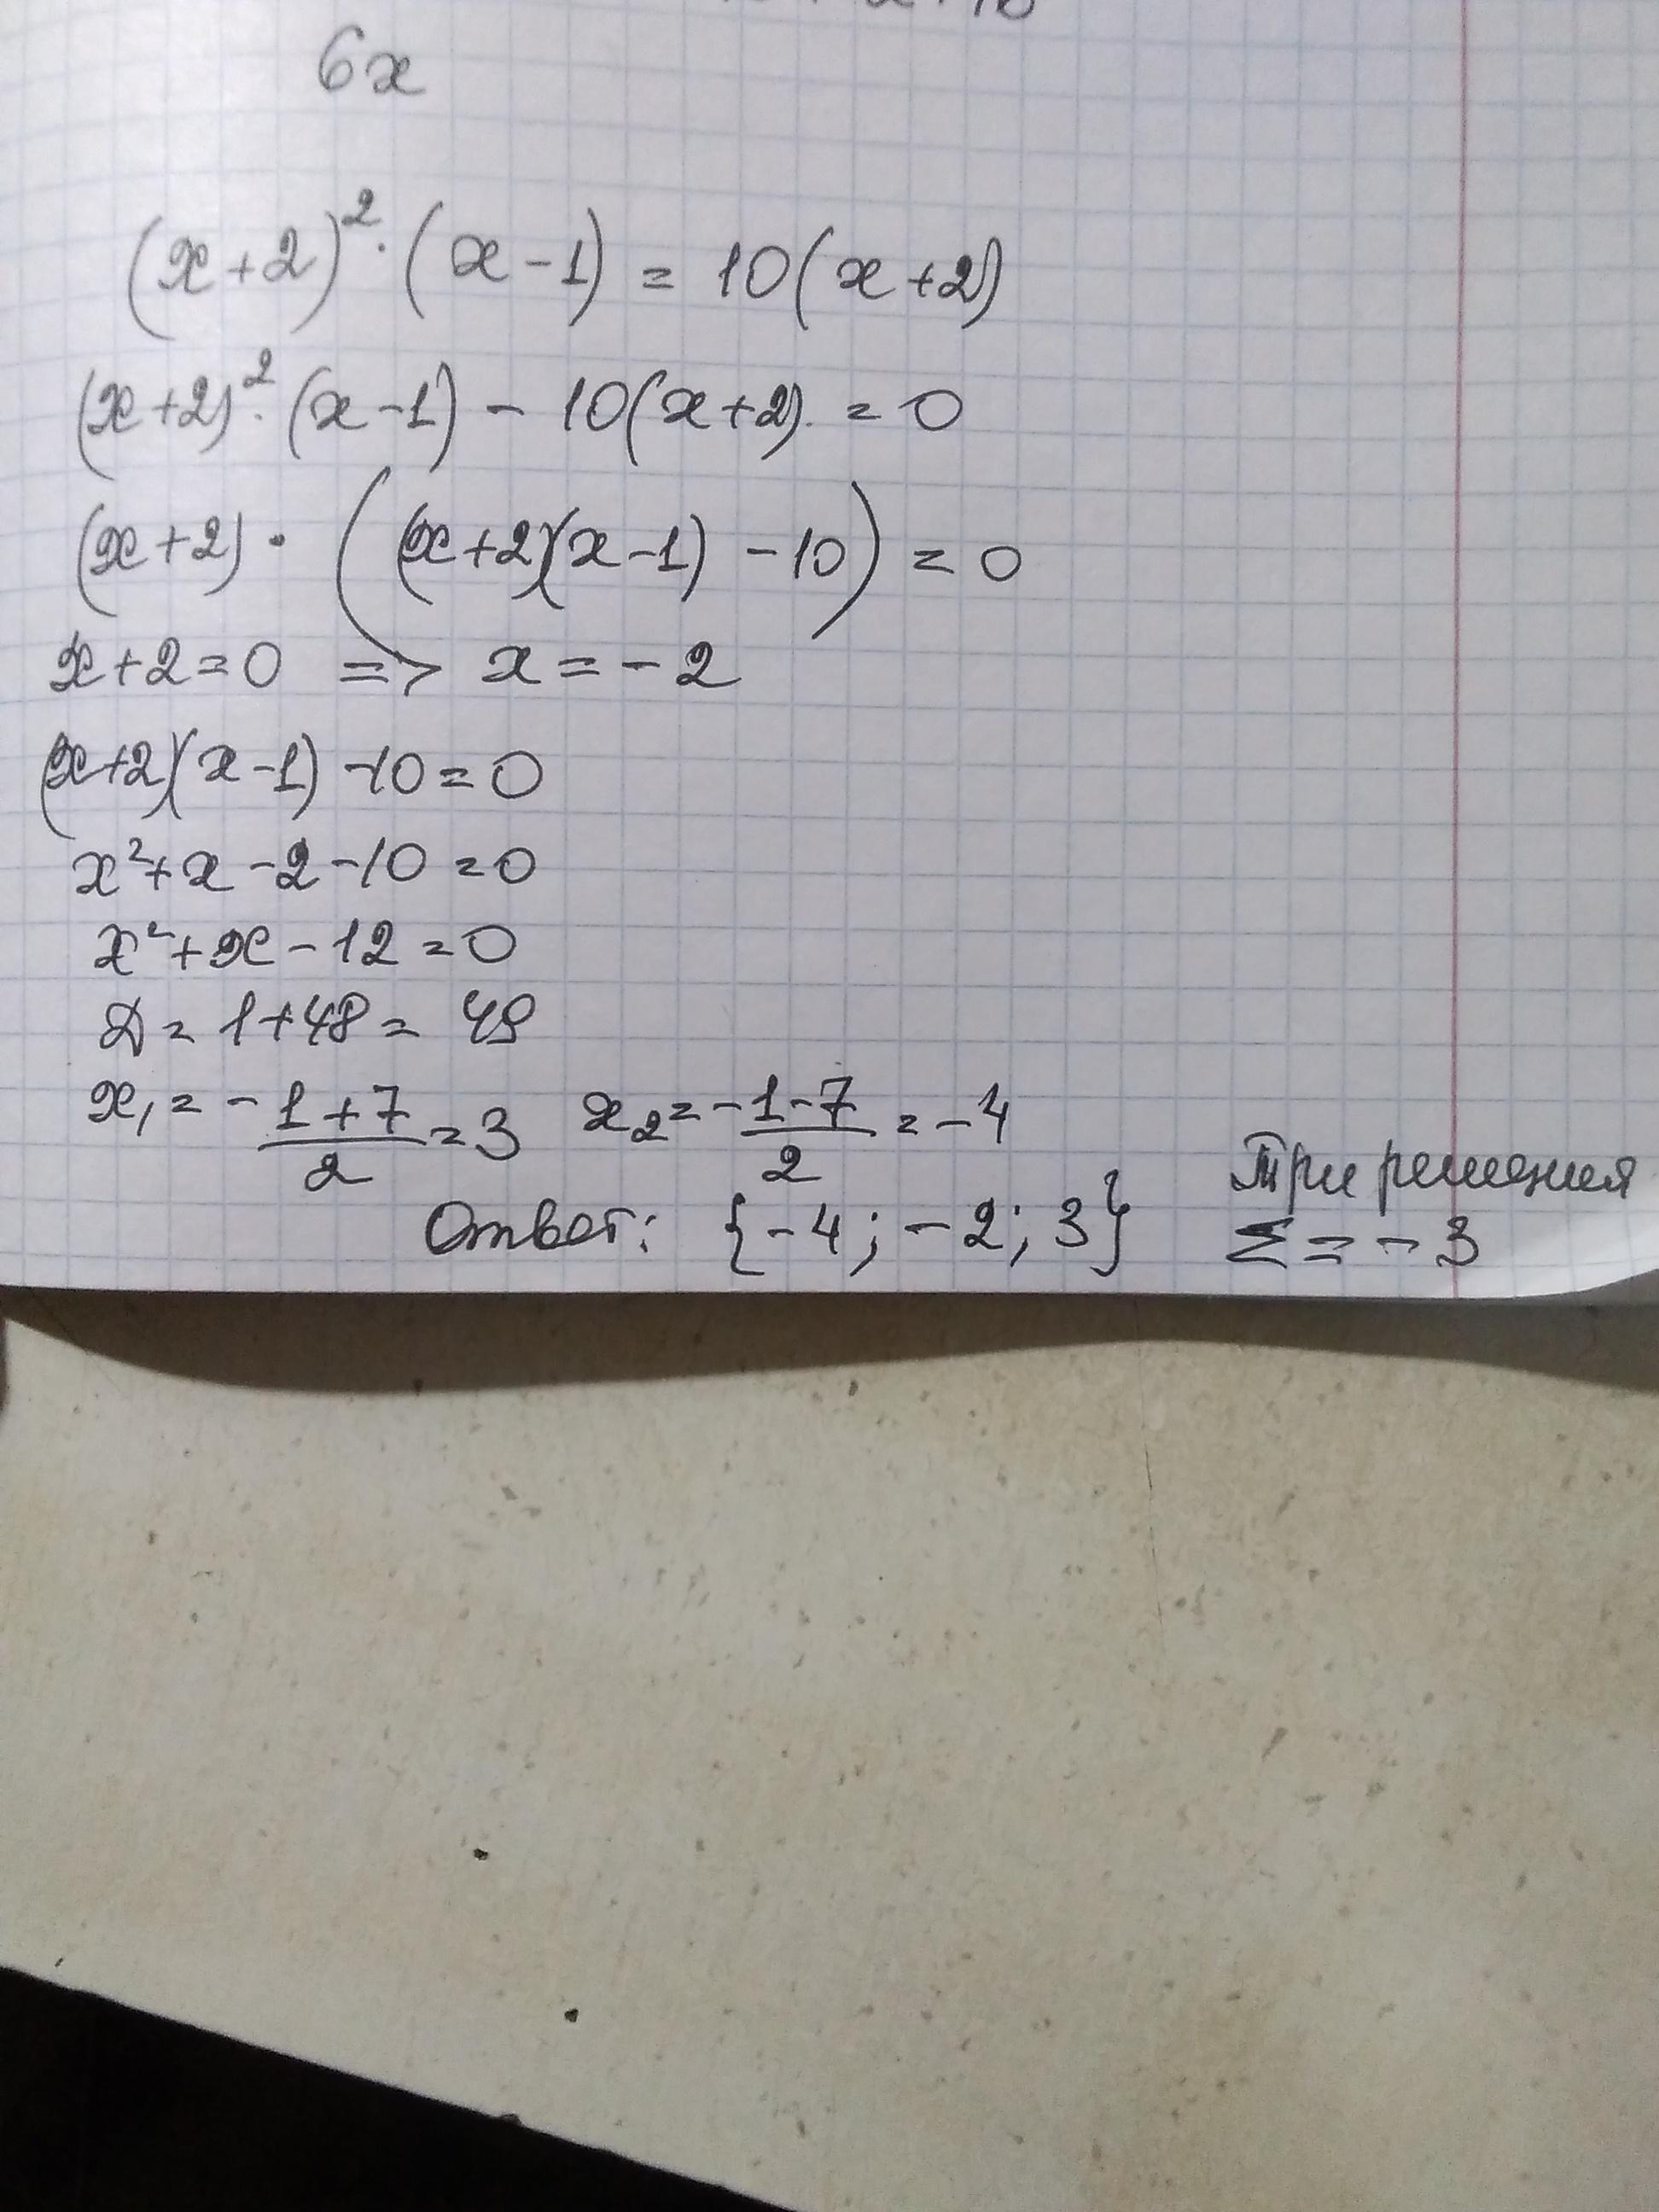 6x
(x+2)²·(x-1) = 10(x+2)
(x+2)²·(x-1) - 10(x+2) = 0
(x+2)·((x+2)(x-1) -10) = 0
x+2=0 => x=-2
(x+2)(x-1) -10=0
x²+x-2-10=0
x²+x-12=0
D=1+48=49
x₁=-1+7/2=3 x₂=-1-7/2=-4
Три решения
Ответ: {-4; -2; 3} Σ=-3